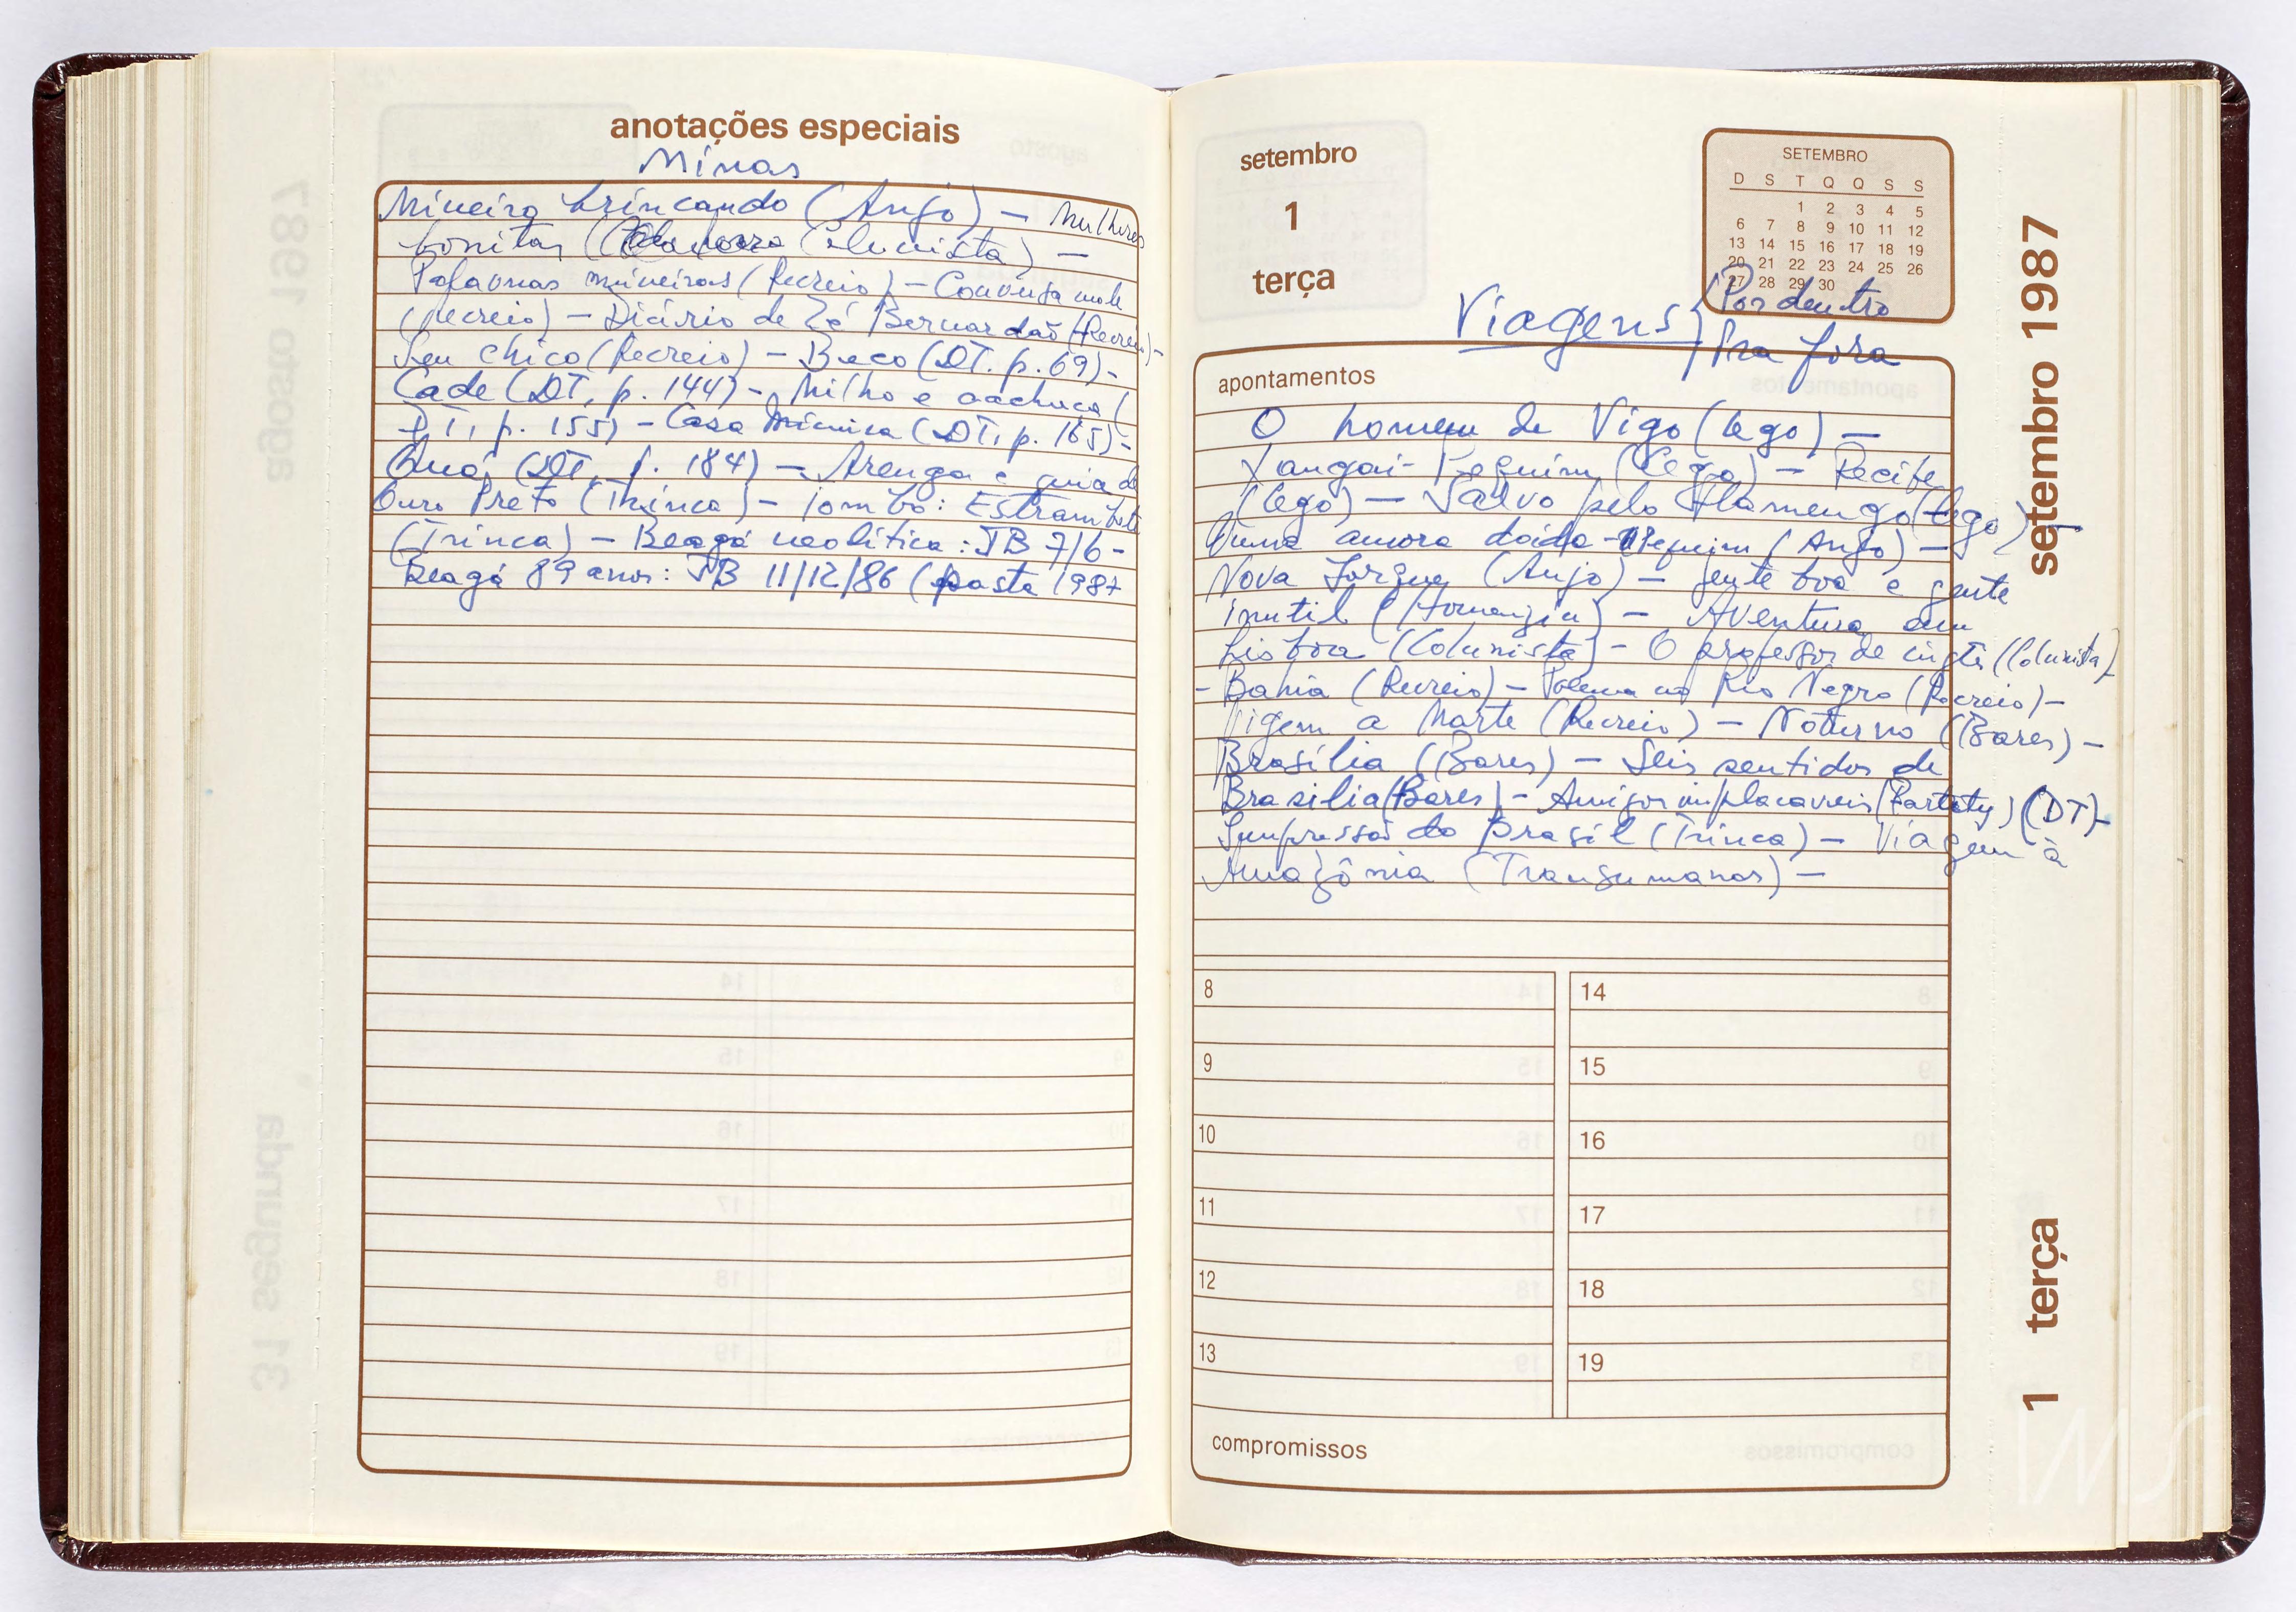 anotações especiais
Minas
Mineiro brincando (Anjo) – Mulheres
bonitas (Colunista) –
Palavras mineiras (Recreio) – Conversa mole
(Recreio) – Diário de Zé Bernardão (Recreio) –
Seu Chico (Recreio) – Beco (DT. p. 69) –
Cade (DT, p. 144) – Milho e cachaça (
DT, p. 155) – Casa Mineira (DT, p. 165) –
(DT, p. 184) – Arenga e guia de
Ouro Preto (Trinca) – Tombo: Estrambote
(Trinca) – Beagá neolítica: JB 7/6 –
Beagá 89 anos: JB 11/12/86 (pasta 1987
agosto 1987
31 segunda
setembro
1
terça
SETEMBRO
D S T Q Q S S
1 2 3 4 5
6 7 8 9 10 11 12
13 14 15 16 17 18 19
20 21 22 23 24 25 26
27 28 29 30
Viagens } Por dentro
Pra fora
apontamentos
O homem de Vigo (Cego) –
Xangai-Pequim (Cego) – Recife
(Cego) – Salvo pelo Flamengo (Cego) –
Numa aurora doida – Pequim (Anjo) –
Nova Iorque (Anjo) – Gente boa e gente
inutil (Homenzin) – Aventura em
Lisboa (Colunista) – O professor de inglês (Colunista)
– Bahia (Recreio) – Poema no Rio Negro (Recreio) –
Vigem a Marte (Recreio) – Noturno (Bares) –
Brasília (Bares) – Seis sentidos de
Brasilia (Bares) – Amigos implacaveis (DT) –
Impressão do Brasil (Trinca) – Viagem à
Amazônia (Transumanas) –
8 14
9 15
10 16
11 17
12 18
13 19
compromissos
setembro 1987
1 terça
IMS